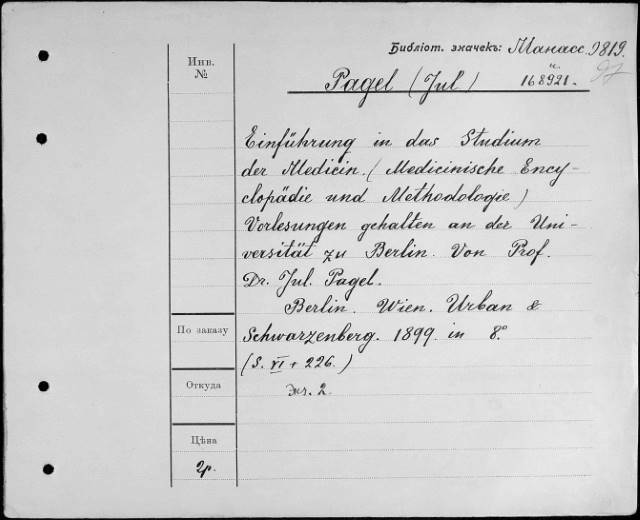 Библіот. значекъ: Манасс. 9819.
и
Инв.
№
Pagel (Jul) 168921.
Einführung in das Studium
der Medicin. (Medicinische Ency-
clopädie und Methodologie)
Vorlesungen gehalten an der Uni-
versität zu Berlin. Von Prof.
Dr. Jul. Pagel.
Berlin. Wien. Urban &
По заказу
Schwarzenberg. 1899. in 8.°
(S. VI + 226.)
Откуда
Экз. 2.
Цѣна
2р.